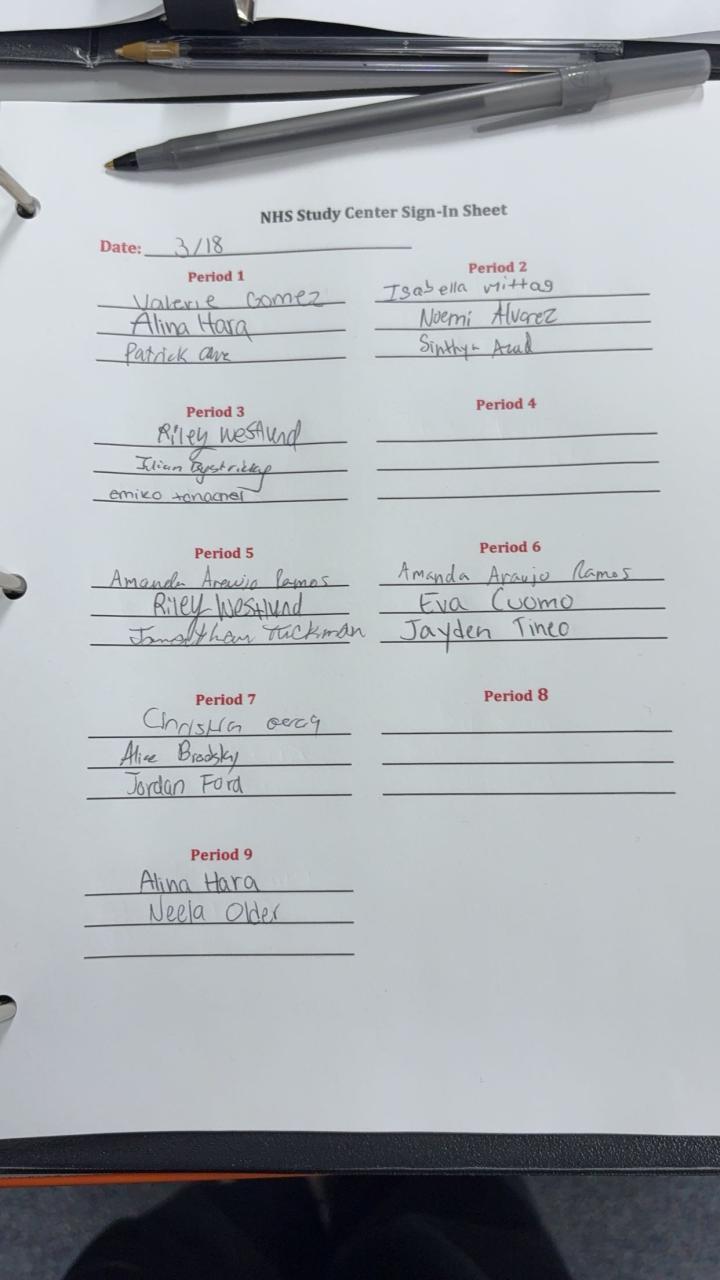 NHS Study Center Sign-In Sheet
Date: 3/18
Period 1
Valerie Gomez
Alina Hara
Patrick
Period 2
Isabella Mittag
Noemi Alvarez
Sinthya Azad
Period 3
Riley Westlund
emiko
Period 4
Period 5
Amanda Araujo Ramos
Riley Westlund
Jonathan Tuckman
Period 6
Amanda Araujo Ramos
Eva Cuomo
Jayden Tineo
Period 7
Alice Brodsky
Jordan Ford
Period 8
Period 9
Alina Hara
Neela Older